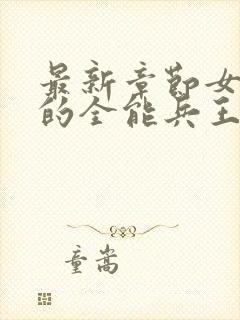 最新章节女
的全能兵王
童嵩